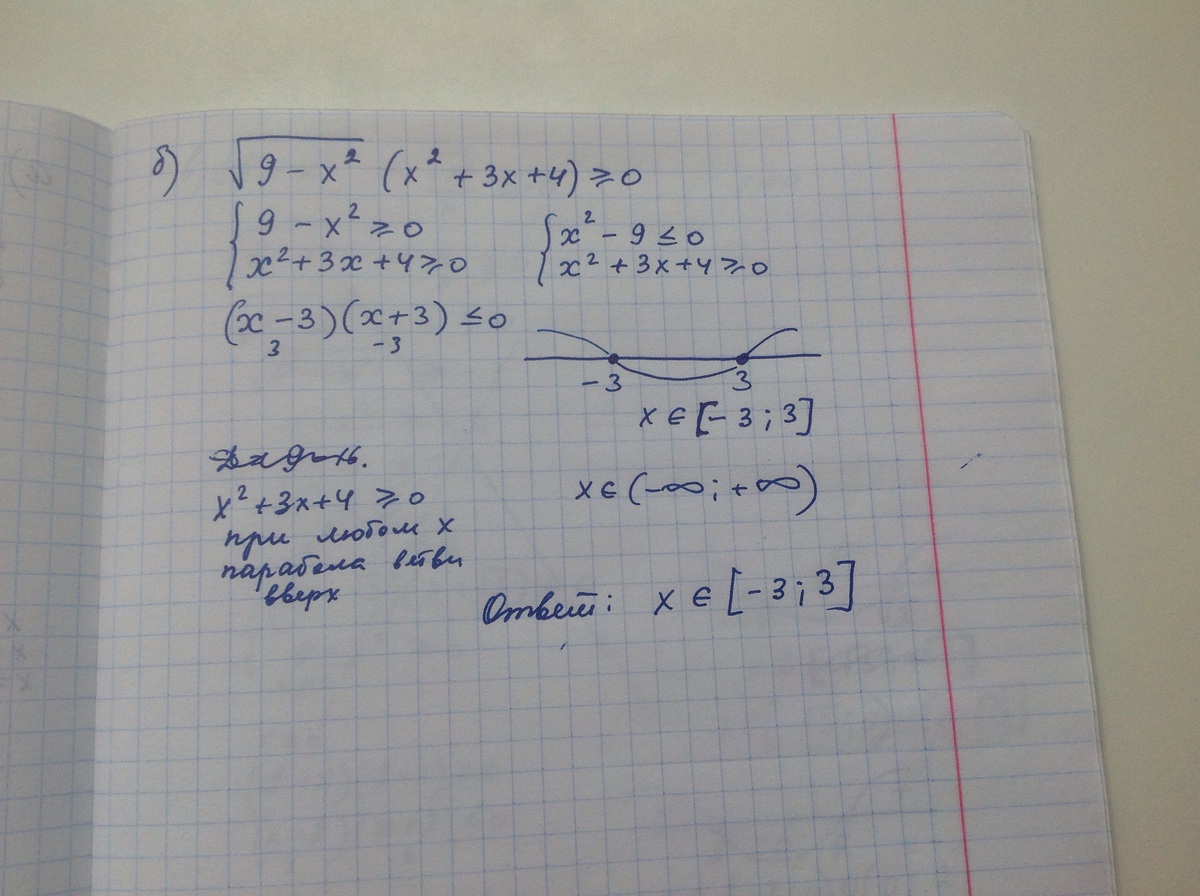 б) √9 - x² (x² + 3x + 4) ≥ 0
{ 9 - x² ≥ 0
x² + 3x + 4 ≥ 0
{ x² - 9 ≤ 0
x² + 3x + 4 ≥ 0
(x - 3)(x + 3) ≤ 0
3 -3
-3 3
x ∈ [-3 ; 3]
x² + 3x + 4 ≥ 0
при любом x
парабола ветви
вверх
x ∈ (-∞ ; +∞)
Ответ: x ∈ [-3 ; 3]